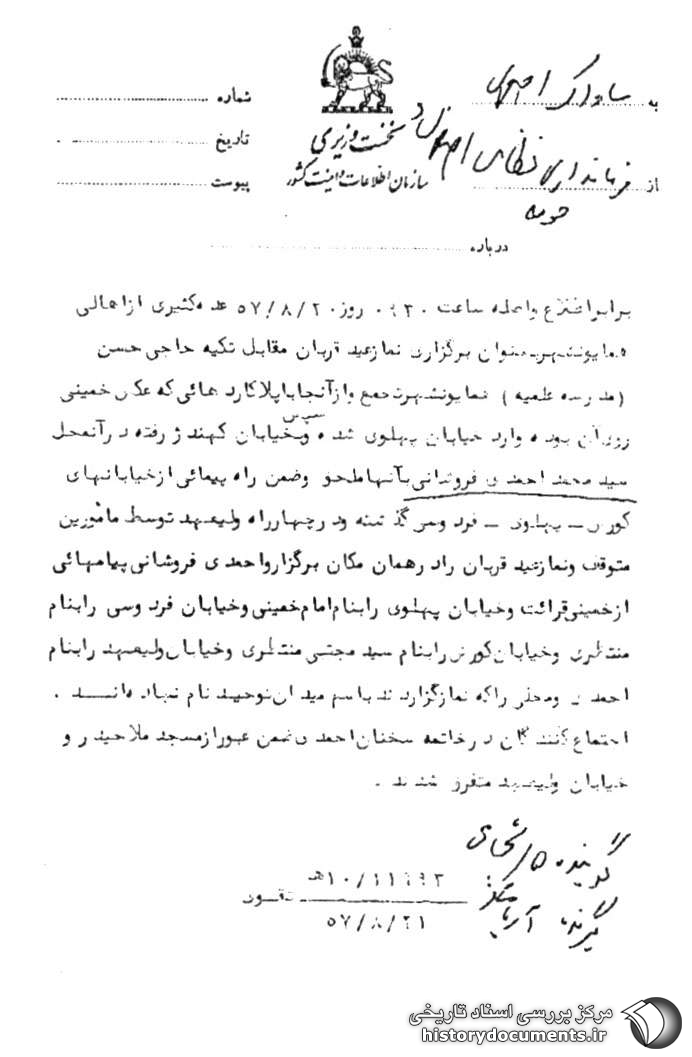 به ساواک
شماره
نخست وزیری
از فرمانداری نظامی
تاریخ
سازمان اطلاعات و امنیت کشور
حومه
پیوست
درباره
برابر اطلاع واصله ساعت ۰۹۳۰ روز ۵۷/۸/۲۰ عده کثیری از اهالی
همایونشهر بعنوان برگزاری نماز عید قربان مقابل تکیه حاجی حسن
(مدرسه علمیه) همایونشهر تجمع و از آنجا با پلاکارد هائی که عکس خمینی
سپس
روی آن بوده وارد خیابان پهلوی شده و بخیابان کهندژ رفته در آنمحل
سید محمد احمدی فروشانی بآنها ملحق و ضمن راه پیمائی از خیابانهای
کورش ـ پهلوی ـ فردوسی گذشته و در چهارراه ولیعهد توسط مامورین
متوقف و نماز عید قربان را در همان مکان برگزار و احمدی فروشانی پیامهائی
از خمینی قرائت و خیابان پهلوی را بنام امام خمینی و خیابان فردوسی را بنام
منتظری و خیابان کورش را بنام سید مجتبی منتظری و خیابان ولیعهد را بنام
احمدی و محلی را که نماز گزاردند باسم میدان توحید نام نهاده‌اند .
اجتماع کنندگان در خاتمه سخنان احمدی ضمن عبور از مسجد ملاحیدر و
خیابان ولیعهد متفرق شدند .
گوینده
۱۰/۱۱۹۹۳هـ
گیرنده
۵۷/۸/۲۱
مرکز بررسی اسناد تاریخی
historydocuments.ir